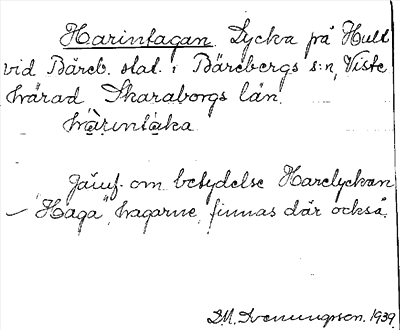 Harintagan. Lycka på Hult
vid Båreb. stat. i Bärebergs s:n, Viste
härad Skaraborgs län.
hàrintàka
Jämf. om betydelse Harelyckan
— "Haga", hagarne, finnas där också.
D.M. Svenungsson. 1939.